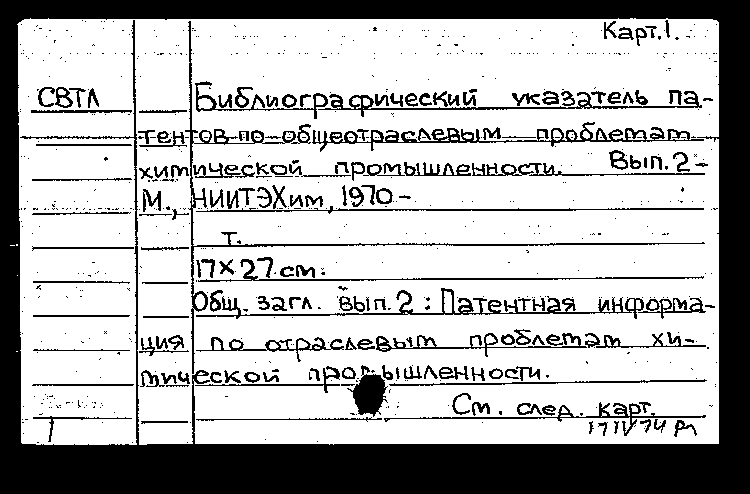 Карт.1.
СВТЛ Библиографический указатель па-
тентов по общеотраслевым проблемам
химической промышленности. Вып.2-
М., НИИТЭХим, 1970-
т.
17×27 см.
Общ. загл. вып. 2 : Патентная информа-
ция по отраслевым проблемам хи-
мической промышленности.
См. след. карт.
17 IV 74